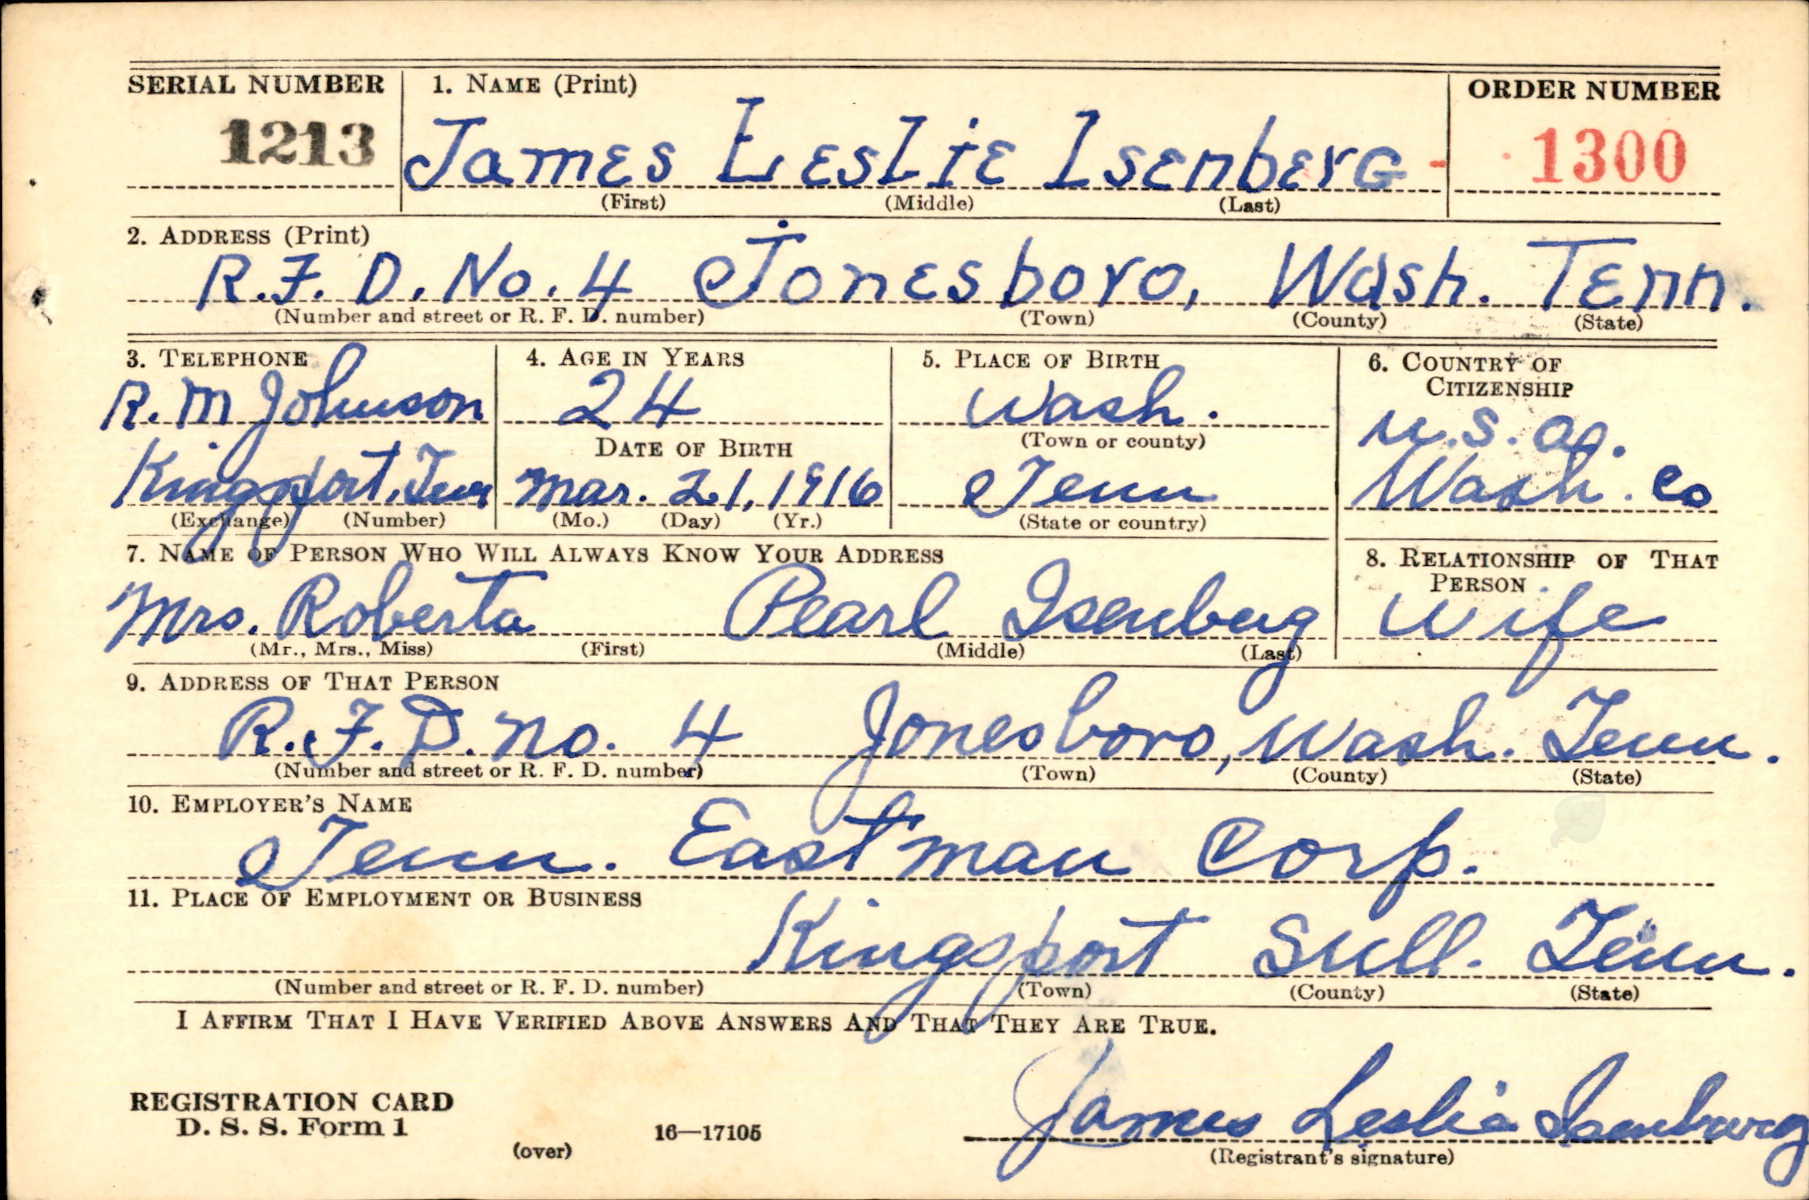 SERIAL NUMBER 1. NAME (Print) ORDER NUMBER
1213 James Leslie Isenberg - 1300
(First) (Middle) (Last)
2. ADDRESS (Print)
R.F.D. No. 4 Jonesboro, Wash. Tenn.
(Number and street or R. F. D. number) (Town) (County) (State)
3. TELEPHONE 4. AGE IN YEARS 5. PLACE OF BIRTH 6. COUNTRY OF CITIZENSHIP
R. M Johnson 24 Wash. U.S.A.
DATE OF BIRTH (Town or county)
Kingsport, Tenn Mar. 21, 1916 Tenn Wash. Co
(Exchange) (Number) (Mo.) (Day) (Yr.) (State or country)
7. NAME OF PERSON WHO WILL ALWAYS KNOW YOUR ADDRESS 8. RELATIONSHIP OF THAT PERSON
Mrs. Roberta Pearl Isenberg Wife
(Mr., Mrs., Miss) (First) (Middle) (Last)
9. ADDRESS OF THAT PERSON
R.F.D. no. 4 Jonesboro, Wash. Tenn.
(Number and street or R. F. D. number) (Town) (County) (State)
10. EMPLOYER'S NAME
Tenn. Eastman Corp.
11. PLACE OF EMPLOYMENT OR BUSINESS
Kingsport Sull. Tenn.
(Number and street or R. F. D. number) (Town) (County) (State)
I AFFIRM THAT I HAVE VERIFIED ABOVE ANSWERS AND THAT THEY ARE TRUE.
REGISTRATION CARD
D. S. S. Form 1
(over) 16—17105 James Leslie Isenberg
(Registrant's signature)